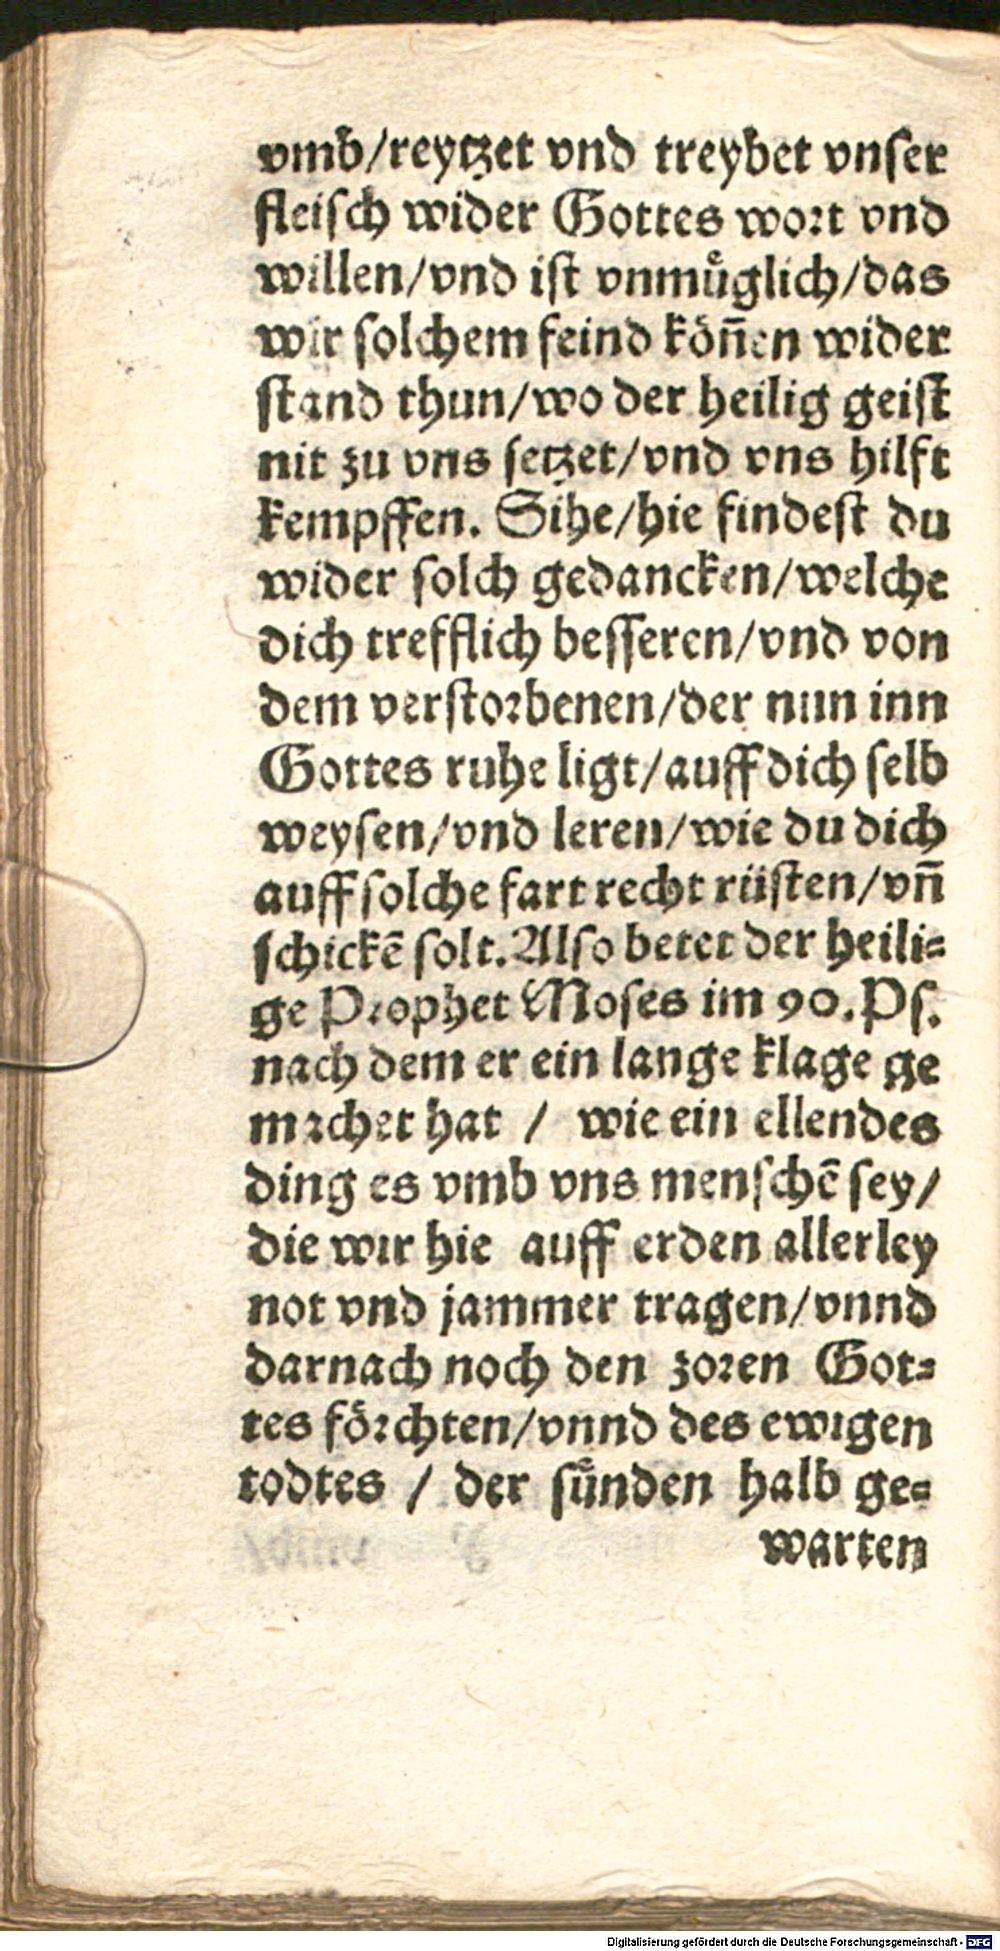 vmb/reytzet vnd treybet vnser
fleisch wider Gottes wort vnd
willen/vnd ist vnmuͤglich/das
wir solchem feind koͤn̄en wider
stand thun/wo der heilig geist
nit zu vns setzet/vnd vns hilft
kempffen. Sihe/hie findest du
wider solch gedancken/welche
dich trefflich besseren/vnd von
dem verstorbenen/der nun inn
Gottes ruhe ligt/auff dich selb
weysen/vnd leren/wie du dich
auff solche fart recht rüsten/vn̄
schickē solt. Also betet der heili=
ge Prophet Moses im 90. Ps.
nach dem er ein lange klage ge
machet hat / wie ein ellendes
ding es vmb vns menschē sey/
die wir hie auff erden allerley
not vnd jammer tragen/vnnd
darnach noch den zoren Got=
tes foͤrchten/vnnd des ewigen
todtes / der suͤnden halb ge=
warten
Digitalisierung gefördert durch die Deutsche Forschungsgemeinschaft - DFG